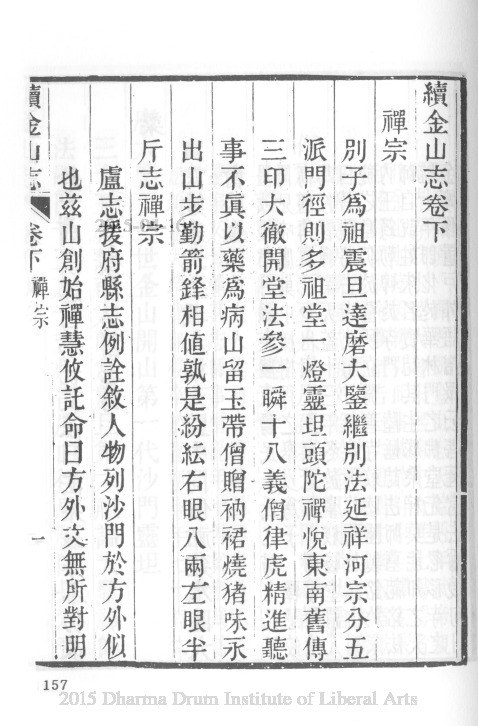 續金山志卷下
禪宗
別子爲祖震旦達磨大鑒繼別法延祥河宗分五
派門徑則多祖堂一燈靈坦頭陀禪悅東南舊傳
三印大徹開堂法參一瞬十八義僧律虎精進聽
事不眞以藥爲病山留玉帶僧贈衲裙燒猪味永
出山步勤箭鋒相値孰是紛紜右眼八兩左眼半
斤志禪宗
盧志援府縣志例詮敘人物列沙門於方外似
也茲山創始禪慧攸託命曰方外文無所對明
續金山志
卷下
禪宗
一
157
2015 Dharma Drum Institute of Liberal Arts